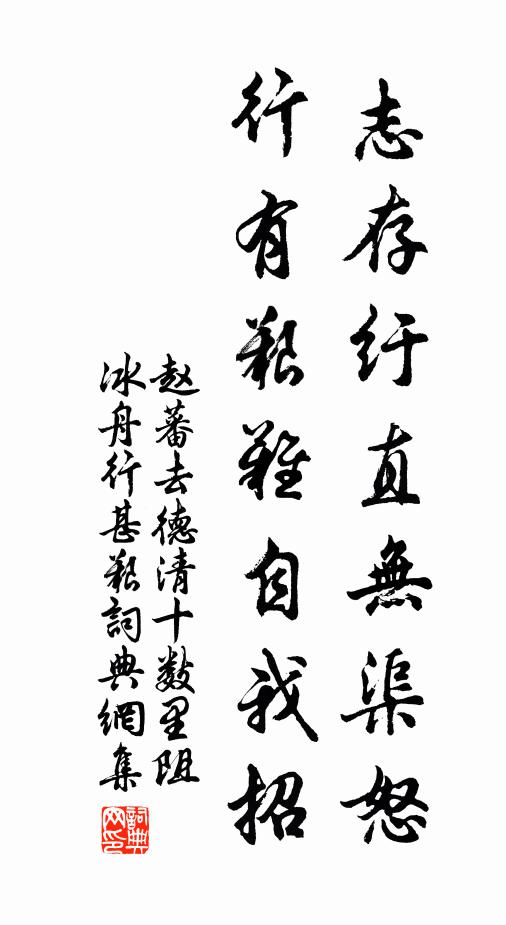 志存纡直無渠怒
行有艱難自我招
赵蕃去德清十数里阻
冰舟行甚艱詞典網集
詞典
网印